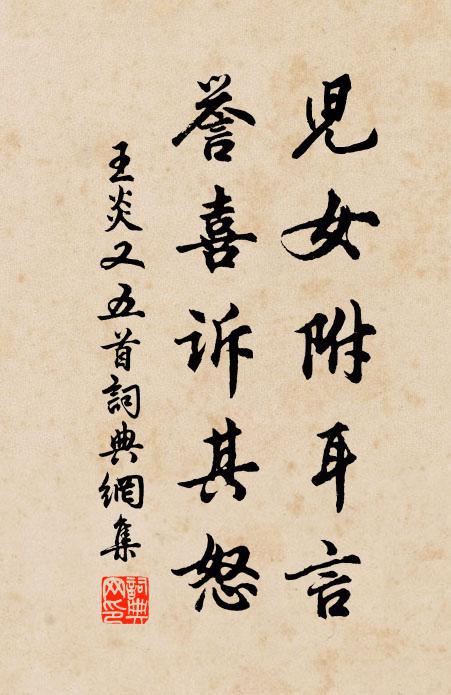 児女附耳言
誉喜訴其怒
王炎又五首詞典網集
詞典